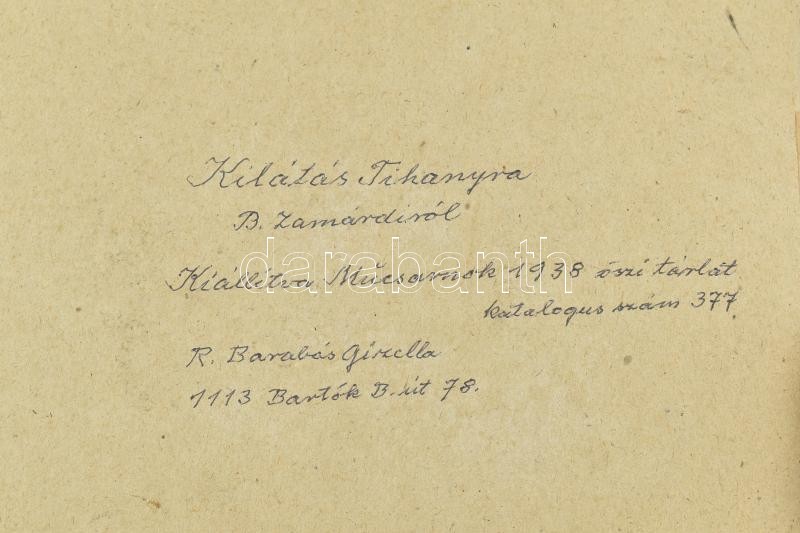 Kilátás Tihanyra
B. Zamárdiról
darabanth
Kiállitva Műcsarnok 1938 őszi tárlat
katalogus szám 377
R. Barabás Gizella
1113 Bartók B. út 78.